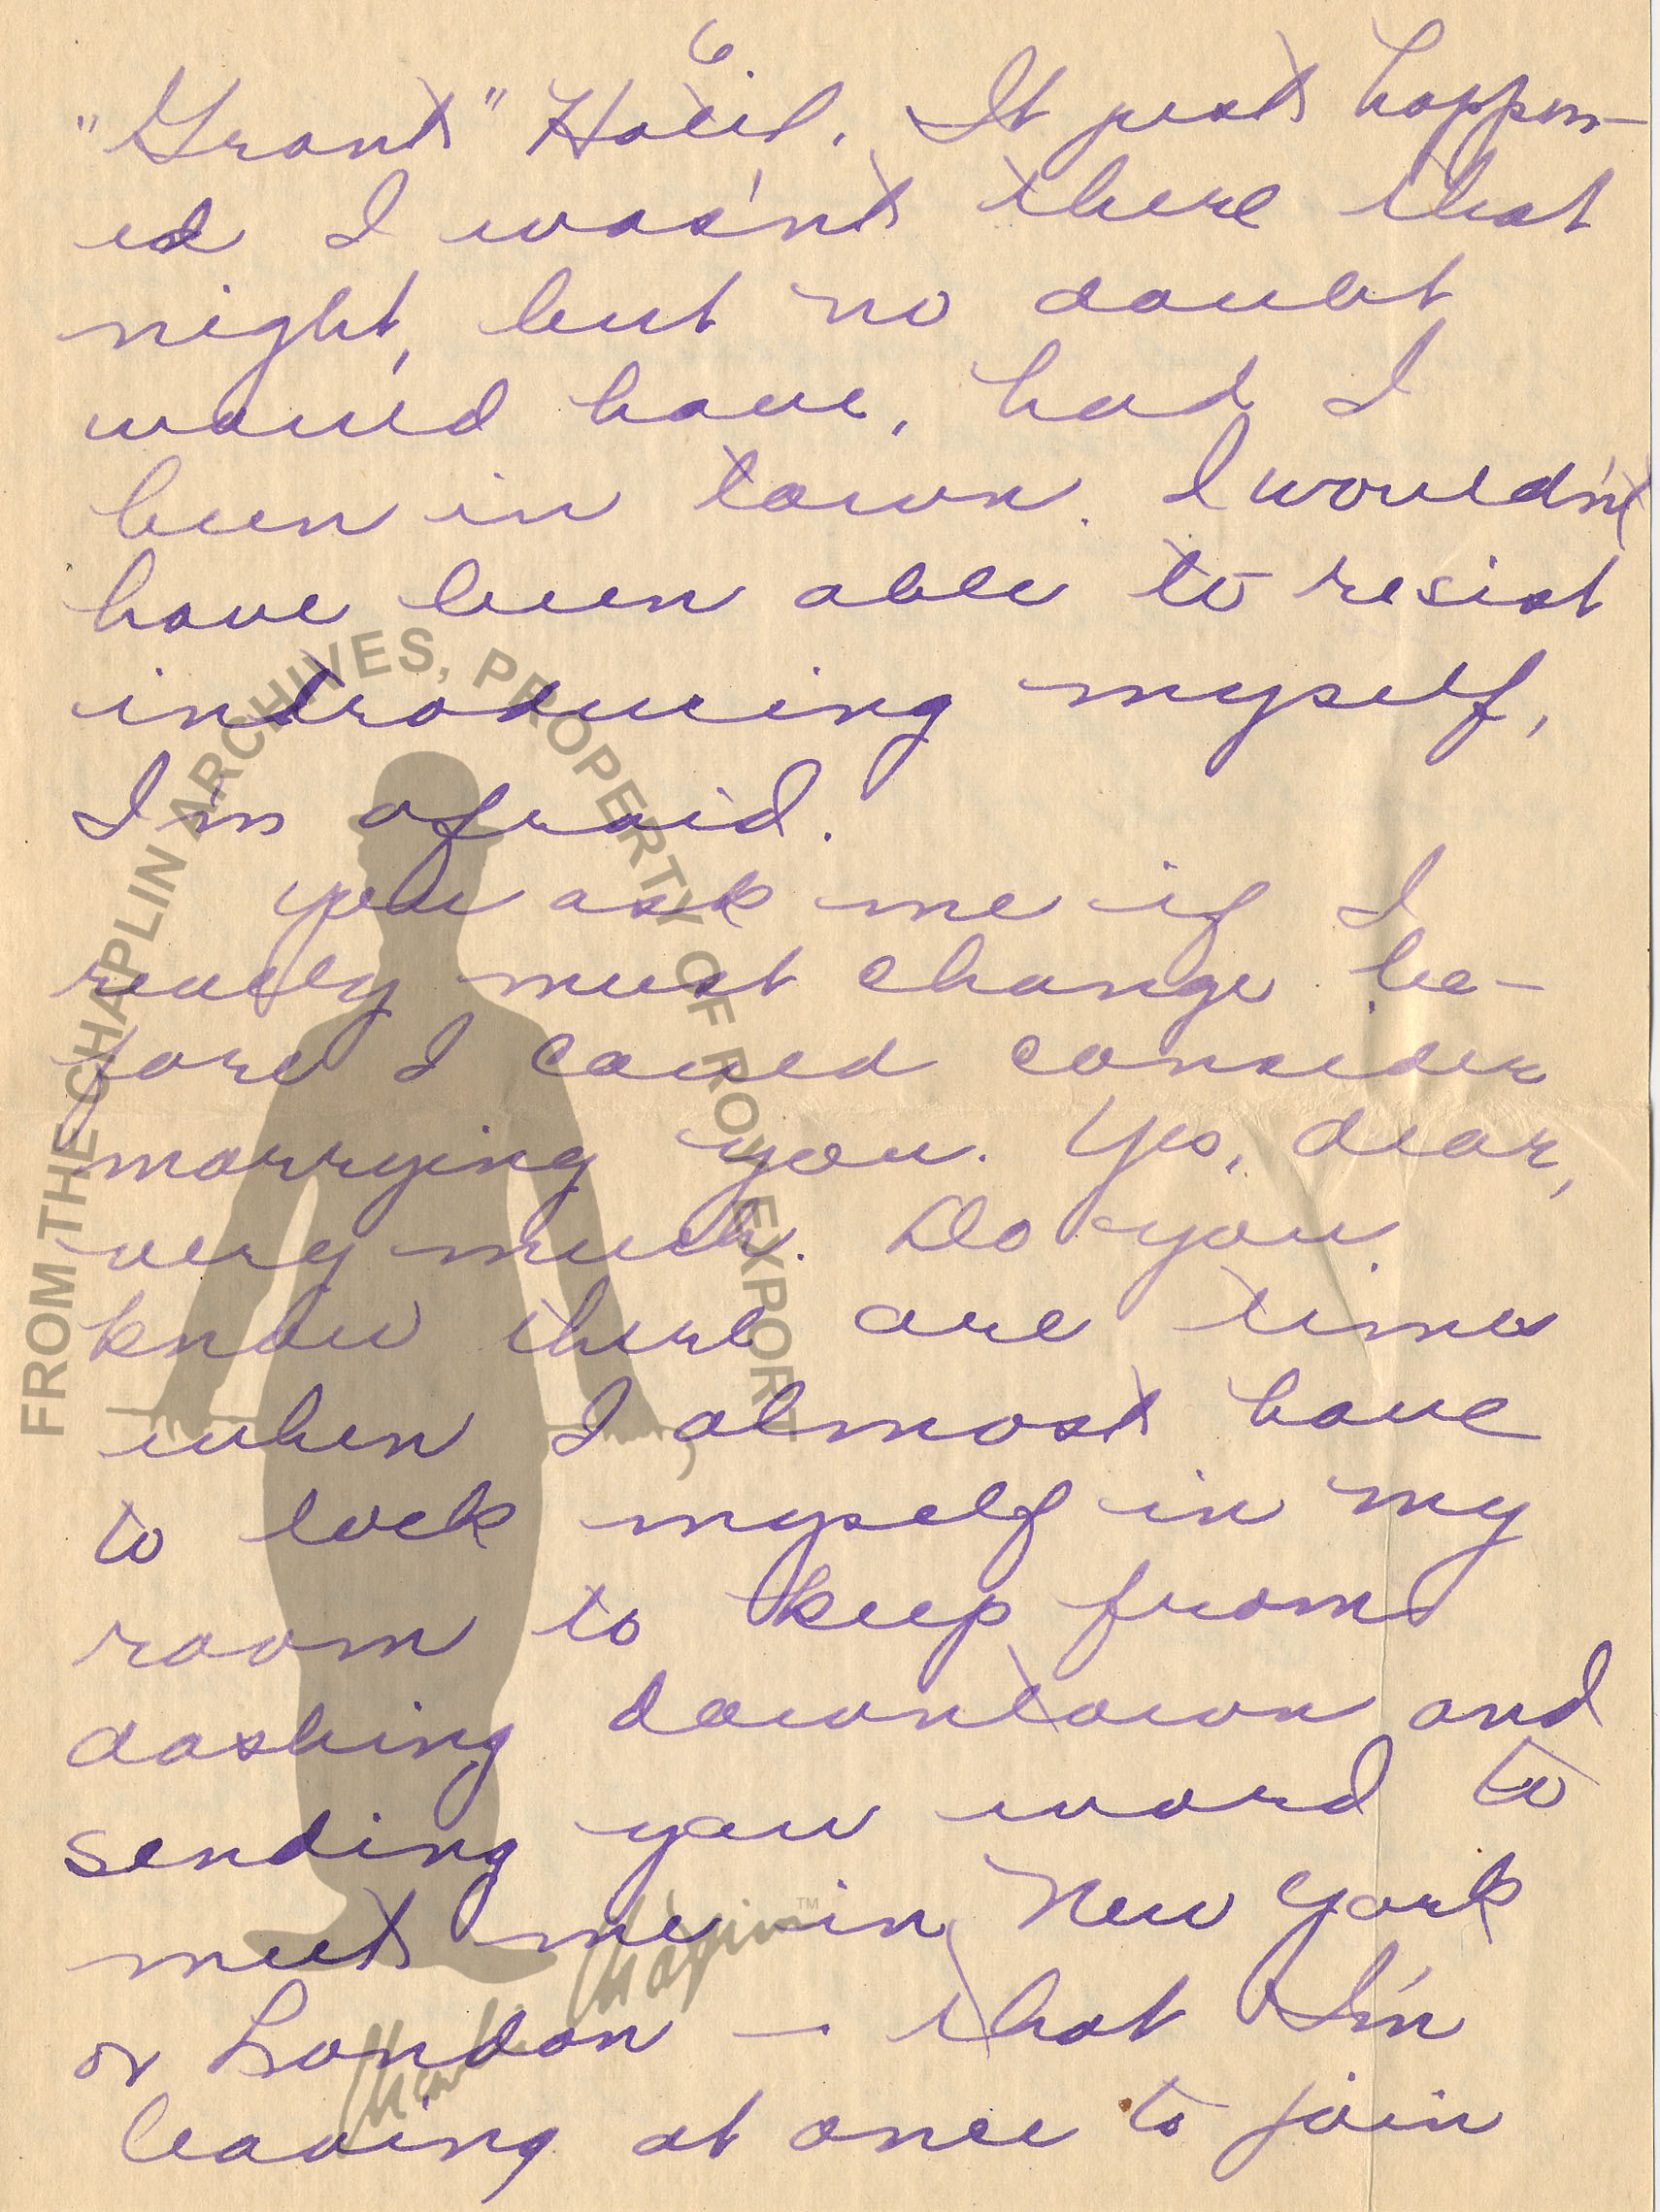 6.
"Grant" Hotel. It just happen-
ed I was'nt there that
night, but no doubt
would have, had I
been in town. I would'nt
have been able to resist
introducing myself,
I'm afraid.
You ask me if I
really must change be-
fore I could consider
marrying you. Yes, dear,
very much. Do you
know there are times
when I almost have
to lock myself in my
room to keep from
dashing downtown and
sending you word to
meet me in New York
or London — that I'm
leaving at once to join
FROM THE CHAPLIN ARCHIVES, PROPERTY OF ROY EXPORT
Charlie Chaplin™